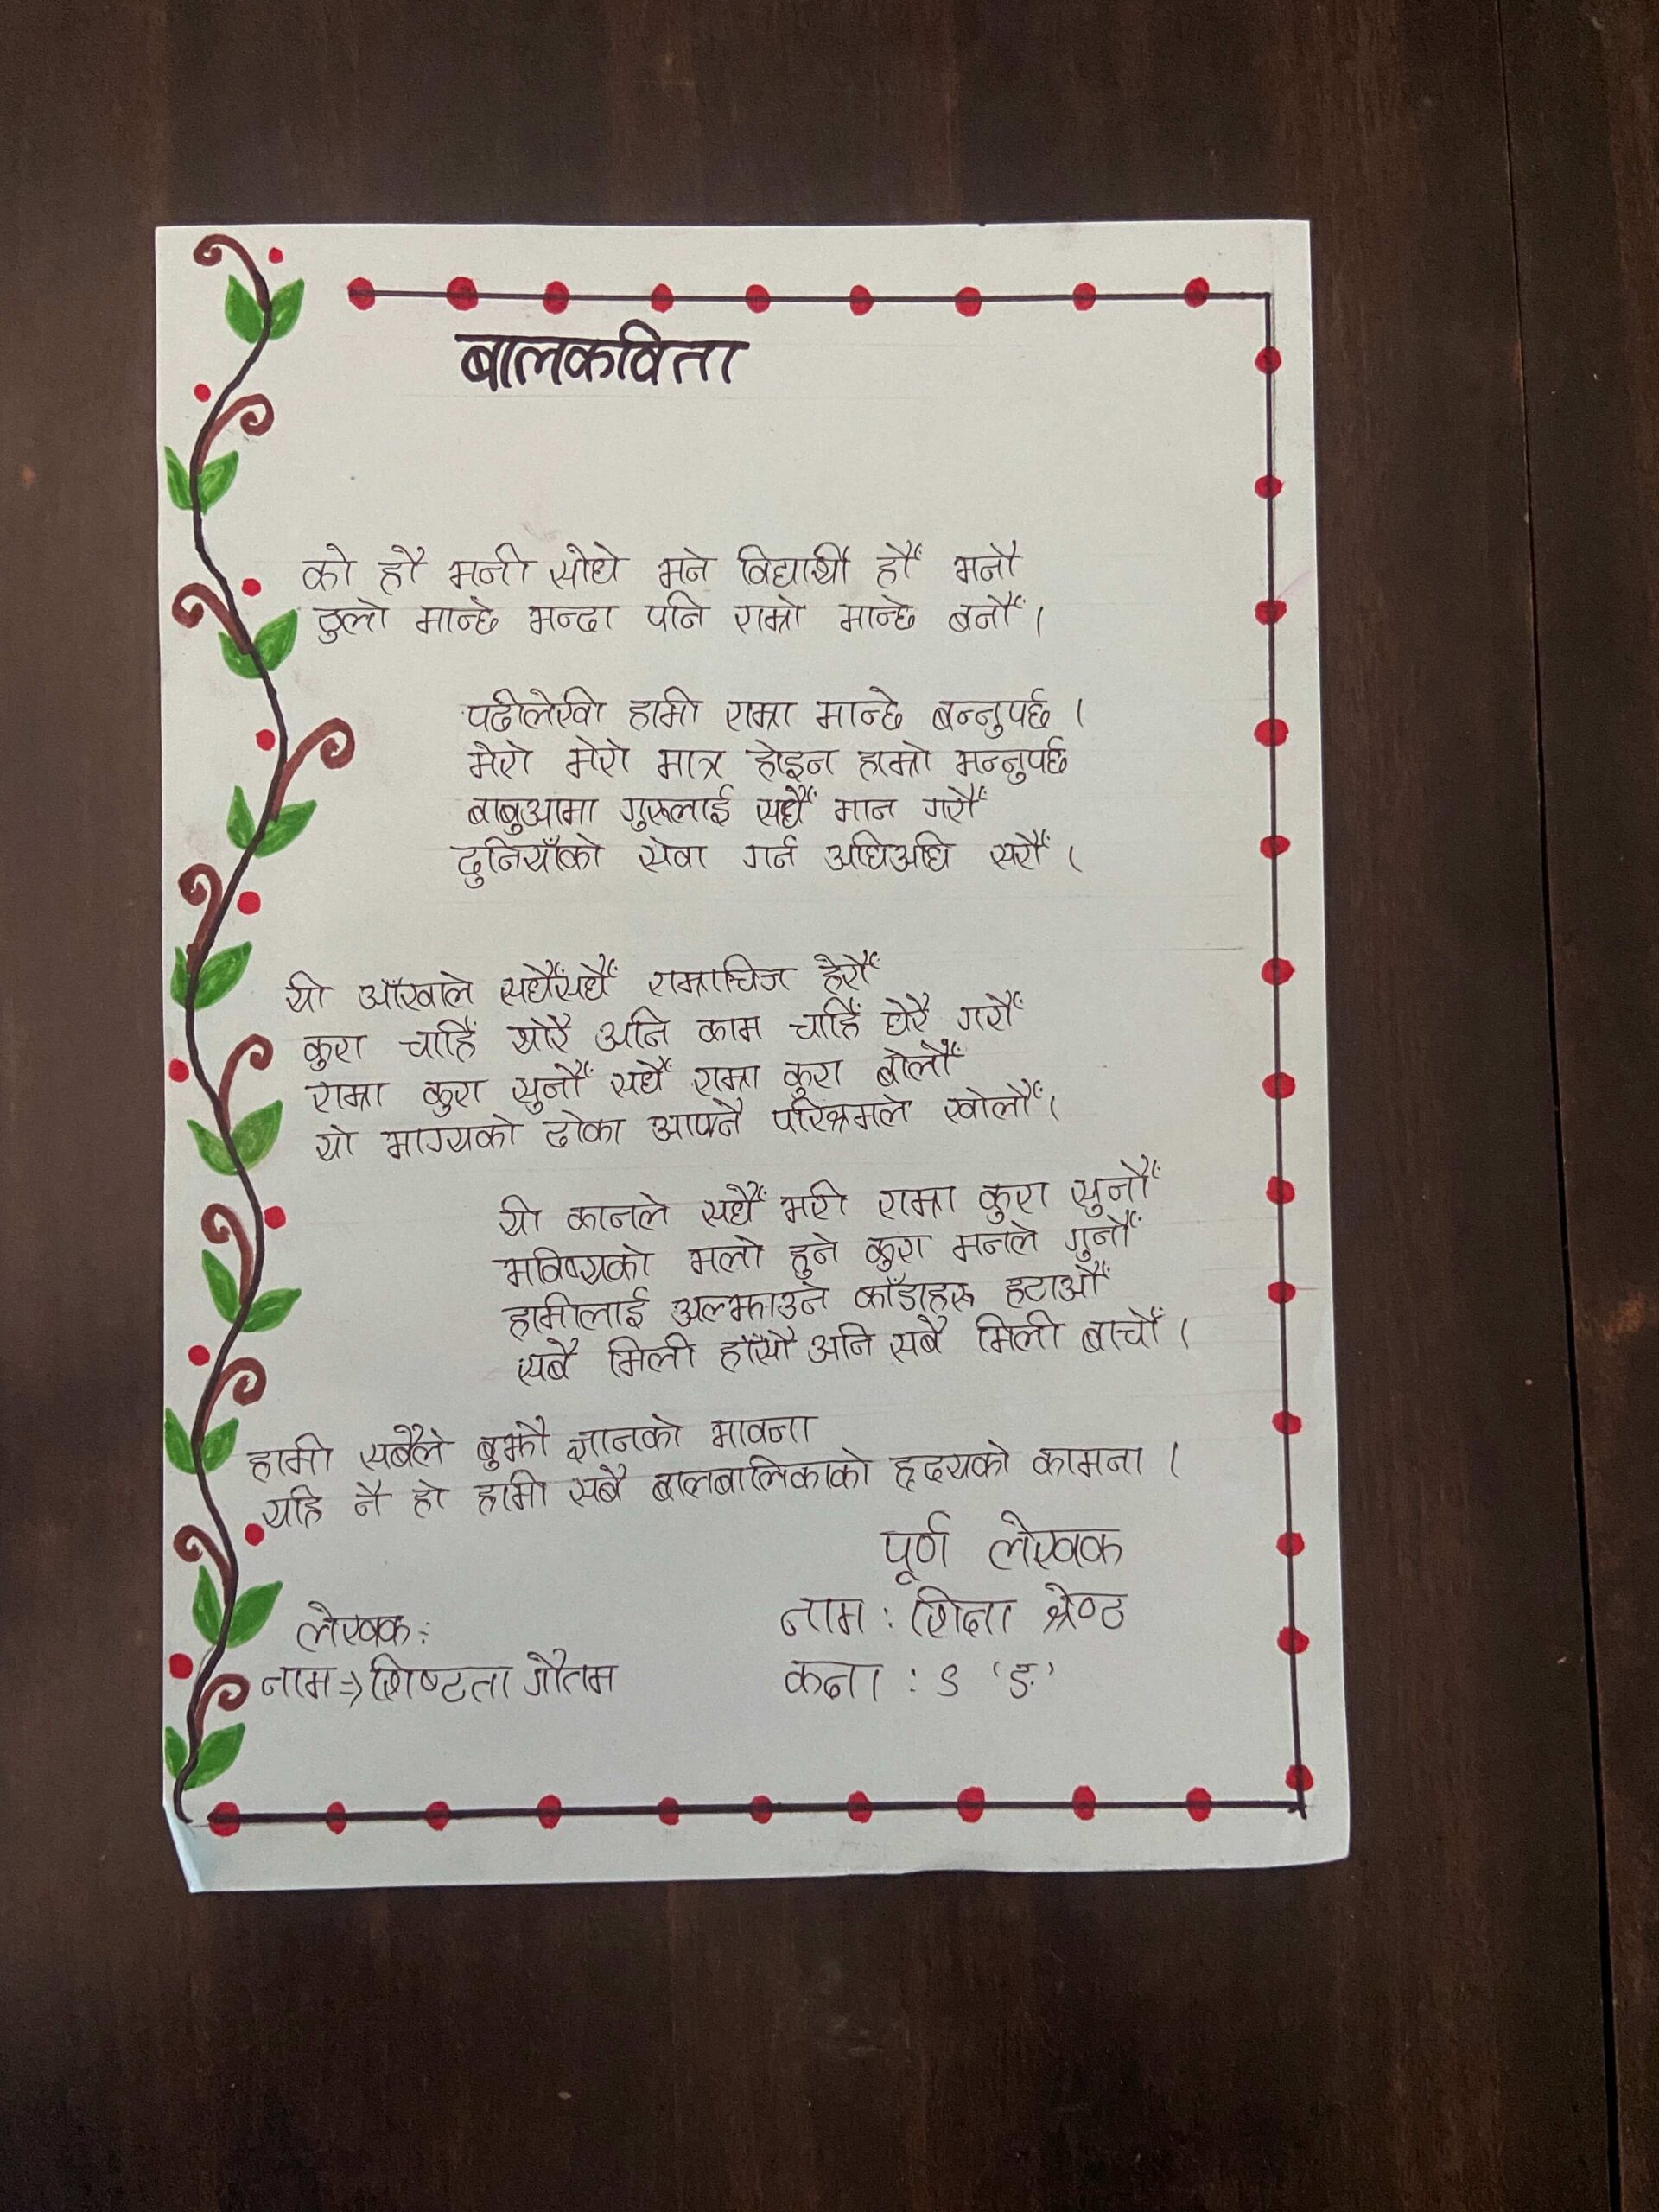 बालकविता
को हौ भनी सोधे भने विद्यार्थी हौं भनौ
ठुलो मान्छे भन्दा पनि राम्रो मान्छे बनौं ।
पढीलेखी हामी राम्रा मान्छे बन्नुपर्छ ।
मेरो मेरो मात्र होइन हाम्रो भन्नुपर्छ
बाबुआमा गुरुलाई सधैं मान गरौं
दुनियाँको सेवा गर्न अघिअघि सरौं ।
यी आँखाले सधैंसधैं राम्राचिज हेरौं
कुरा चाहिँ थोरै अनि काम चाहिँ धेरै गरौं
राम्रा कुरा सुनौं सधैं राम्रा कुरा बोलौं
यो भाग्यको ढोका आफ्नै परिश्रमले खोलौं ।
यी कानले सधैं भरी राम्रा कुरा सुनौं
भविष्यको भलो हुने कुरा मनले गुनौं
हामीलाई अल्झाउने काँडाहरू हटाऔं
सबै मिली हाँसौ अनि सबै मिली बाचौं ।
हामी सबैले बुझौ ज्ञानको भावना
यहि नै हो हामी सबै बालबालिकाको हृदयको कामना ।
पूर्ण लेखक
लेखक:
नाम : शिक्षा श्रेष्ठ
नाम⇒शिष्टता गौतम
कक्षा : ९ 'ङ'